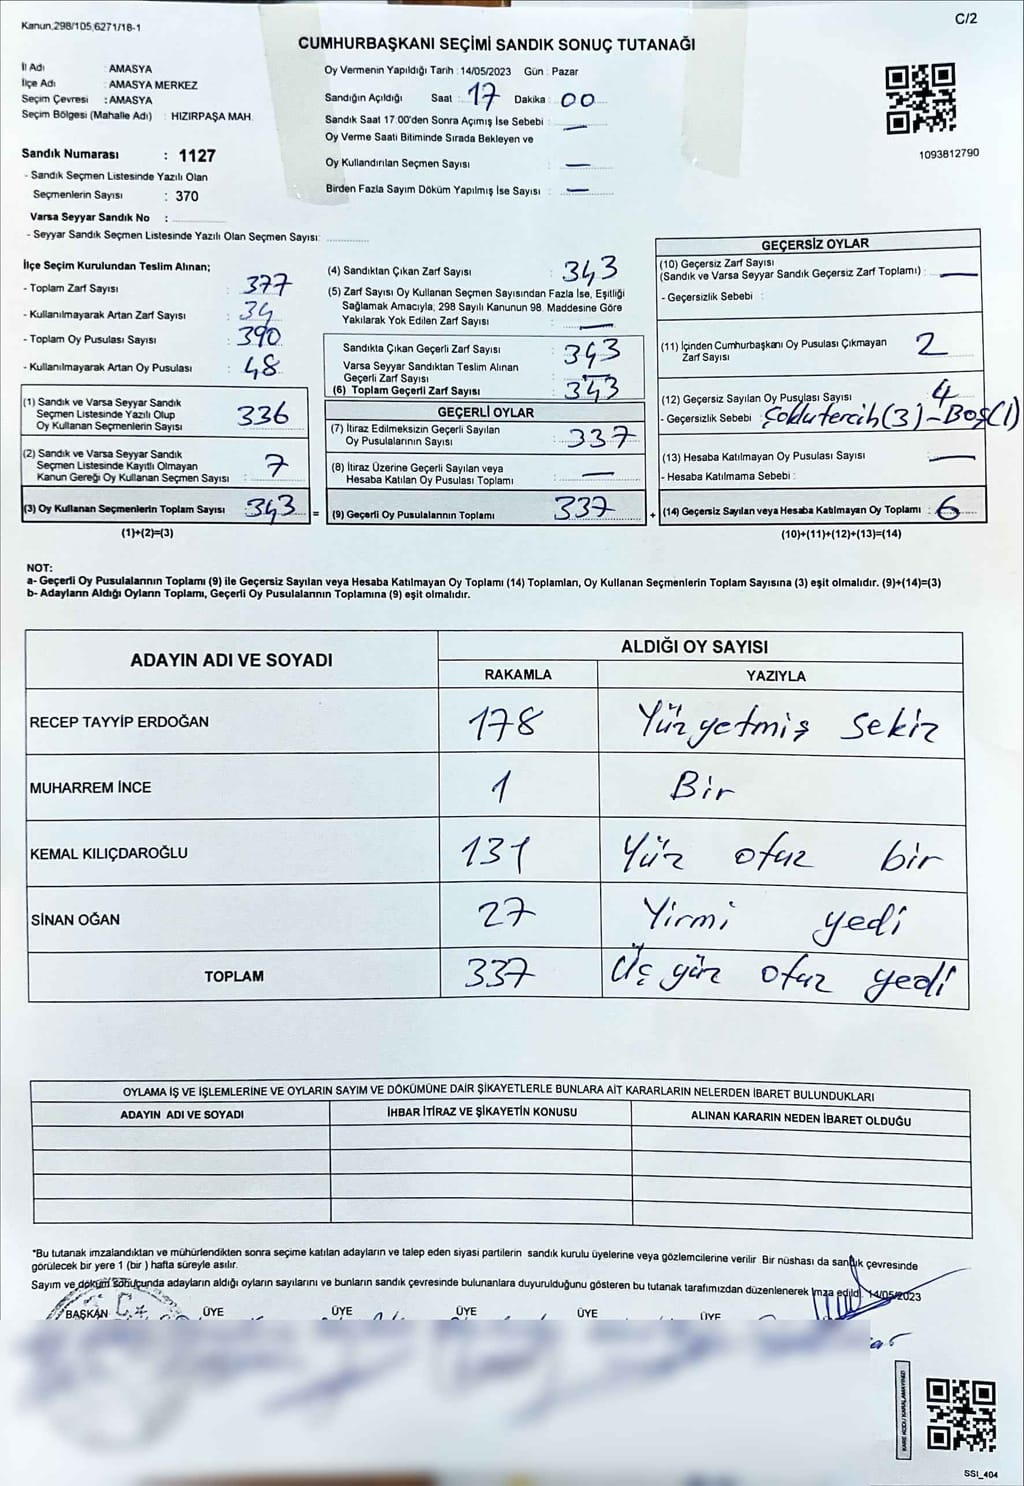 Kanun,298/105,6271/18-1
C/2
CUMHURBAŞKANI SEÇİMİ SANDIK SONUÇ TUTANAĞI
İl Adı : AMASYA
İlçe Adı : AMASYA MERKEZ
Seçim Çevresi : AMASYA
Seçim Bölgesi (Mahalle Adı) : HIZIRPAŞA MAH.
Sandık Numarası : 1127
- Sandık Seçmen Listesinde Yazılı Olan
Seçmenlerin Sayısı : 370
Varsa Seyyar Sandık No :
- Seyyar Sandık Seçmen Listesinde Yazılı Olan Seçmen Sayısı:
Oy Vermenin Yapıldığı Tarih : 14/05/2023 Gün : Pazar
Sandığın Açıldığı Saat : 17 Dakika : 00
Sandık Saat 17.00'den Sonra Açımış İse Sebebi : —
Oy Verme Saati Bitiminde Sırada Bekleyen ve
Oy Kullandırılan Seçmen Sayısı : —
Birden Fazla Sayım Döküm Yapılmış İse Sayısı : —
1093812790
İlçe Seçim Kurulundan Teslim Alınan;
- Toplam Zarf Sayısı : 377
- Kullanılmayarak Artan Zarf Sayısı : 34
- Toplam Oy Pusulası Sayısı : 390
- Kullanılmayarak Artan Oy Pusulası : 48
(1) Sandık ve Varsa Seyyar Sandık
Seçmen Listesinde Yazılı Olup
Oy Kullanan Seçmenlerin Sayısı : 336
(2) Sandık ve Varsa Seyyar Sandık
Seçmen Listesinde Kayıtlı Olmayan
Kanun Gereği Oy Kullanan Seçmen Sayısı : 7
(3) Oy Kullanan Seçmenlerin Toplam Sayısı : 343 =
(1)+(2)=(3)
(4) Sandıktan Çıkan Zarf Sayısı : 343
(5) Zarf Sayısı Oy Kullanan Seçmen Sayısından Fazla İse, Eşitliği
Sağlamak Amacıyla, 298 Sayılı Kanunun 98. Maddesine Göre
Yakılarak Yok Edilen Zarf Sayısı : —
Sandıkta Çıkan Geçerli Zarf Sayısı : 343
Varsa Seyyar Sandıktan Teslim Alınan
Geçerli Zarf Sayısı : —
(6) Toplam Geçerli Zarf Sayısı : 343
GEÇERLİ OYLAR
(7) İtiraz Edilmeksizin Geçerli Sayılan
Oy Pusulalarının Sayısı : 337
(8) İtiraz Üzerine Geçerli Sayılan veya
Hesaba Katılan Oy Pusulası Toplamı : —
(9) Geçerli Oy Pusulalarının Toplamı : 337 +
GEÇERSİZ OYLAR
(10) Geçersiz Zarf Sayısı
(Sandık ve Varsa Seyyar Sandık Geçersiz Zarf Toplamı) : —
- Geçersizlik Sebebi :
(11) İçinden Cumhurbaşkanı Oy Pusulası Çıkmayan
Zarf Sayısı : 2
(12) Geçersiz Sayılan Oy Pusulası Sayısı : 4
- Geçersizlik Sebebi : Çoklu tercih (3) - Boş (1)
(13) Hesaba Katılmayan Oy Pusulası Sayısı : —
- Hesaba Katılmama Sebebi :
(14) Geçersiz Sayılan veya Hesaba Katılmayan Oy Toplamı : 6
(10)+(11)+(12)+(13)=(14)
NOT:
a- Geçerli Oy Pusulalarının Toplamı (9) ile Geçersiz Sayılan veya Hesaba Katılmayan Oy Toplamı (14) Toplamları, Oy Kullanan Seçmenlerin Toplam Sayısına (3) eşit olmalıdır. (9)+(14)=(3)
b- Adayların Aldığı Oyların Toplamı, Geçerli Oy Pusulalarının Toplamına (9) eşit olmalıdır.
ADAYIN ADI VE SOYADI
ALDIĞI OY SAYISI
RAKAMLA YAZIYLA
RECEP TAYYİP ERDOĞAN 178 Yüz yetmiş sekiz
MUHARREM İNCE 1 Bir
KEMAL KILIÇDAROĞLU 131 Yüz otuz bir
SİNAN OĞAN 27 Yirmi yedi
TOPLAM 337 Üç yüz otuz yedi
OYLAMA İŞ VE İŞLEMLERİNE VE OYLARIN SAYIM VE DÖKÜMÜNE DAİR ŞİKAYETLERLE BUNLARA AİT KARARLARIN NELERDEN İBARET BULUNDUKLARI
ADAYIN ADI VE SOYADI İHBAR İTİRAZ VE ŞİKAYETİN KONUSU ALINAN KARARIN NEDEN İBARET OLDUĞU
*Bu tutanak imzalandıktan ve mühürlendikten sonra seçime katılan adayların ve talep eden siyasi partilerin sandık kurulu üyelerine veya gözlemcilerine verilir. Bir nüshası da sandık çevresinde
görülecek bir yere 1 (bir) hafta süreyle asılır.
Sayım ve döküm sonucunda adayların aldığı oyların sayılarını ve bunların sandık çevresinde bulunanlara duyurulduğunu gösteren bu tutanak tarafımızdan düzenlenerek imza edildi. 14/05/2023
BAŞKAN ÜYE ÜYE ÜYE ÜYE ÜYE
KARE KODU KARALAMAYINIZ!
SSI_404